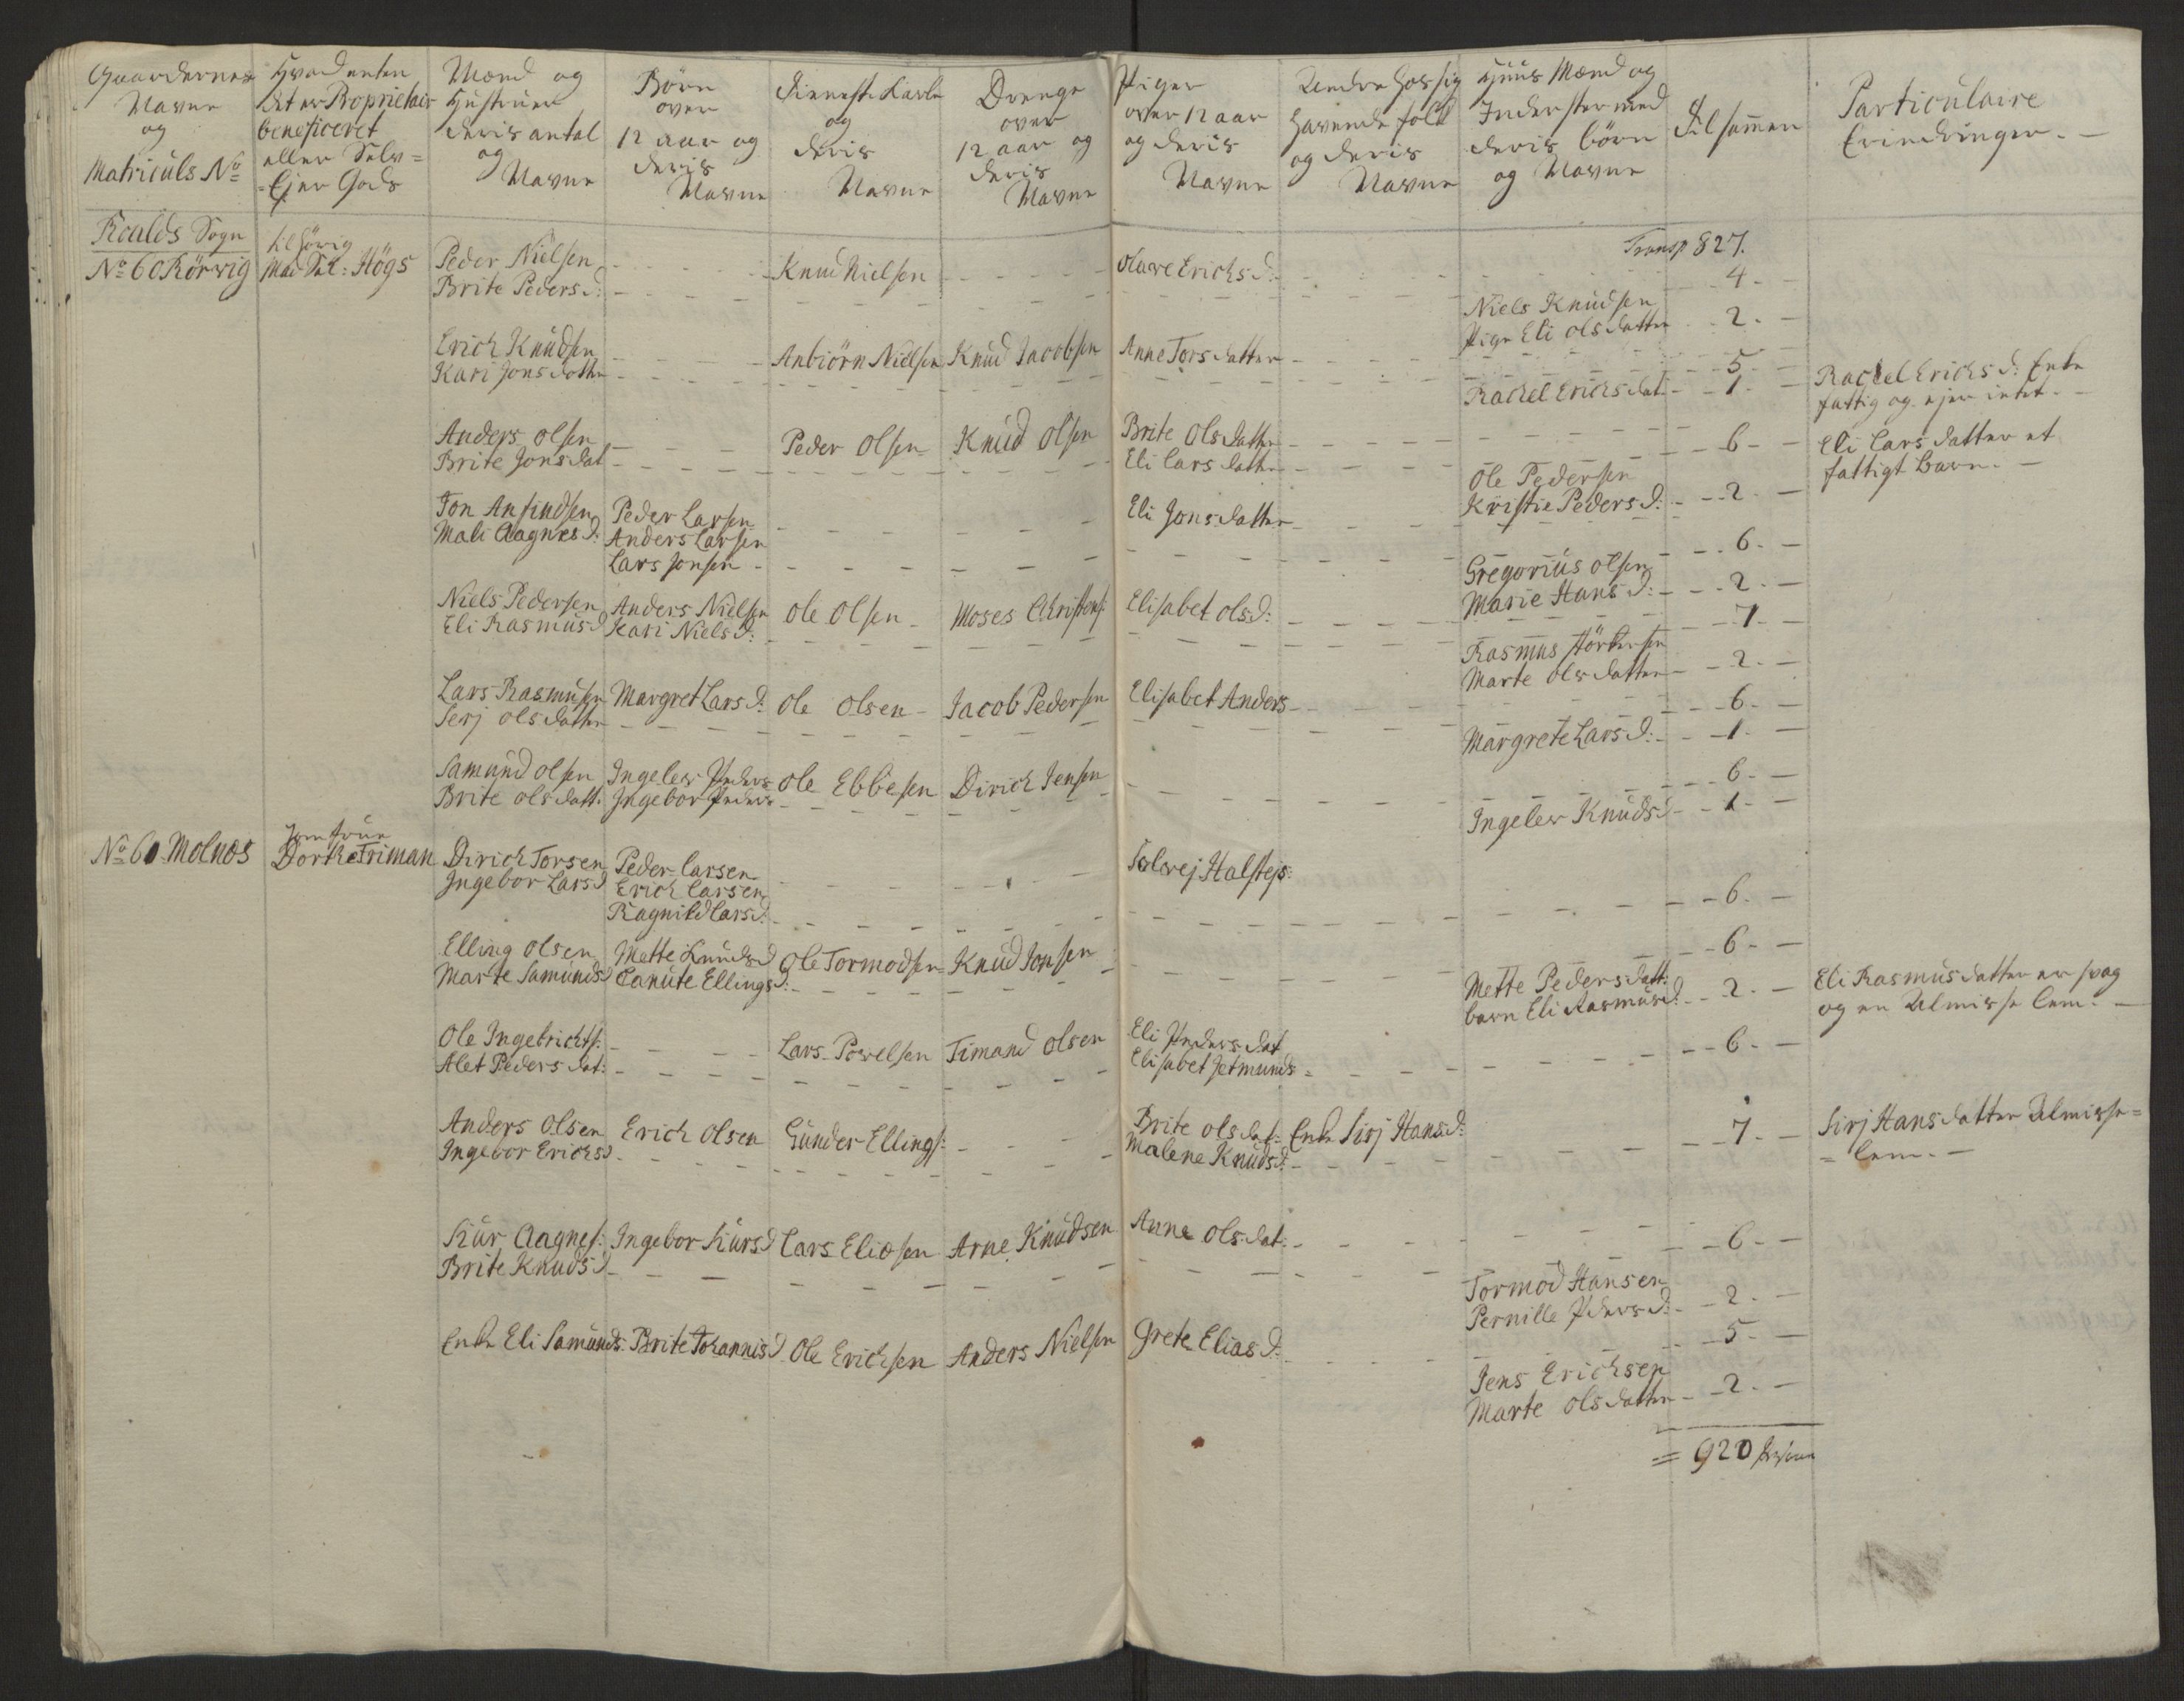 Gaardernes
Navne
og
Matriculs No
Hvad enten
det er Proprietair
beneficeret
eller Selv=
=Ejer Gods
Mænd og
Hustruer
deris antal
og
Navne
Börn
over
12 aar og
deris
Navne
Tieneste Karle
og
deris
Navne
Drenge
over
12 aar og
deris
Navne
Piger
over 12 aar
og deris
Navne
Andre hos sig
havende folk
og deris
Navne
Huus Mænd og
Inderster med
deris börn
og Navne
Tilsammen
Particulaire
Erindringer. -
Roalds Sogn
Transp 827.
No 60 Rörvig
tilhörig
Mad Sal: Högs
Peder Nielsen
Brite Peders d:
Knud Nielsen
Olave Erichs d:
4.
Niels Knudsen
Pige Eli Olsdatter
2.
Erich Knudsen
Kari Jonsdatter
Anbiörn Nielsen
Knud Jacobsen
Anne Torsdatter
5.
Rachel Erichsdat:
1.
Rachel Erichs d: Enke
fattig og ejer intet. -
Anders Olsen
Brite Jonsdat
Peder Olsen
Knud Olsen
Brite Olsdatter
Eli Larsdatter
6
Eli Larsdatter et
fattigt barn. -
Ole Pedersen
Kristie Peders d:
2.
Jon Anfindsen
Mali Aagnes d:
Peder Larsen
Anders Larsen
Lars Jonsen
Eli Jonsdatter
6.
Gregorius Olsen
Marie Hans d:
2.
Niels Pedersen
Eli Rasmus d
Anders Nielsen
Kari Niels d:
Ole Olsen
Moses Christens:
Elisabet Ols d:
7.
Rasmus Störkersen
Marte Olsdatter
2.
Lars Rasmusen
Serj Olsdatter
Margret Lars d:
Ole Olsen
Jacob Pedersen
Elisabet Anders
6.
Margrete Lars d:
1.
Samund Olsen
Brite Olsdatt:
Ingelev Peders
Ingebor Peders
Ole Ebbesen
Dirich Jensen
6.
Ingelev Knuds d
1.
No 60. Molnes
Jomfrue
Dorthe Friman
Dirich Torsen
Ingebor Lars d
Peder Larsen
Erich Larsen
Ragnild Lars d:
Tolvej Halstejs:
6.
Elling Olsen
Marte Samunds
Mette Knuds d
Canute Ellings d:
Ole Tormodsen
Knud Jonsen
6.
Mette Pedersdatt:
barn Eli Rasmus d:
2.
Eli Rasmusdatter er svag
og en Almisse lem. -
Ole Ingebrichts:
Alet Pedersdat:
Lars Powelsen
Timand Olsen
Eli Pedersdat
Elisabet Jetmunds
6.
Anders Olsen
Ingebor Erichs d
Erich Olsen
Gunder Ellings:
Brite Olsdat:
Malene Knuds d:
Enke Sirj Hans d:
7.
Sirj Hansdatter Almisse=
=lem. -
Kur Aagnes:
Brite Knuds d
Ingebor Kurs d
Lars Eliæsen
Arne Knudsen
Anne Olsdat:
6.
Tormod Hansen
Pernille Peders d:
2.
Enke Eli Samunds:
Brite Johannis d
Ole Erichsen
Anders Nielsen
Grete Elias d:
5.
Jens Erichsen
Marte Olsdatter
2.
= 920